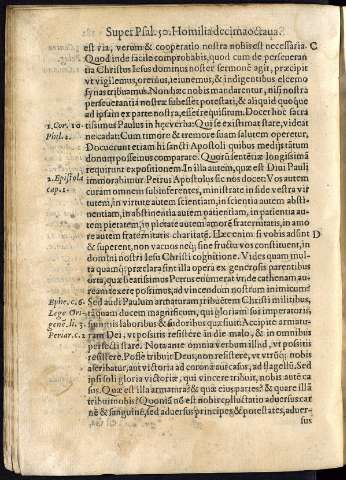 Super Psal. 50. Homilia decima octaua.
est via, verum & cooperatio nostra nobis est necessaria. C
Quod inde facile comprobabis, quod cum de perseueran
tia Christus Iesus dominus noster sermonẽ agit, præcipit
vt vigilemus, oremus, ieiunemus, & indigentibus eleemo
synas tribuamus. Non hæc nobis mandarentur, nisi nostra
perseuerantia nostræ subesset potestati, & aliquid quoque
ad ipsam ex parte nostra, esset requisitum. Docet hoc sacra
1. Cor. 10. tissimus Paulus in hęc verba: Qui se existimat stare, videat
Phil. 2. ne cadat. Cum timore & tremore suam salutem operetur,
Docuerunt etiam hi sancti Apostoli quibus medijs tātum
donum possemus comparare. Quorū sententiæ longissimā
requirunt expositionem. In illa autem, quæ est Diui Pauli
2. Epistola immorabimur. Petrus Apostolus sic nos docet: Vos autem
cap. 1. curam omnem subinferentes, ministrate in fide vestra vir
tutem, in virtute autem scientiam, in scientia autem absti-
nentiam, in abstinentia autem patientiam, in patientia au
tem pietatem, in pietate autem amorē fraternitatis, in amo
re autem fraternitatis charitatē. Hæc enim si vobis adsint D
& superent, non vacuos necꝗ; sine fructu vos constituent, in
domini nostri Iesu Christi cognitione. Vides quam mul-
ta quamꝗ; præclara sint illa opera ex generosis parentibus
orta, quæ beatissimus Petrus enumerat vr̃, de cathena aureā
reddam possimus, ad vincendum nostrum inimicum!
Ephe. c. 6. Sed audi Paulum armaturam tribuētem Christi militibus,
Lege Ori- tanquam ducem magnificum, qui gloriam sui imperatoris
genē. li. 3. spinis laboribus & sudoribus quæsiuit. Accipite armatu-
Periar. c. 1 ram Dei, vt possitis resistere in die malo, & in omnibus
perfecti stare. Notate ante omnia verbum illud, vt possitis
resistere. Posse tribuit Deus, non resistere, vt vtrūꝗ; nobis
asseribatur, aut victoria ad coronā aut casus, ad flagellū. Sed
ipsi soli gloria victoriæ, qui vincere tribuit, nobis autē ca
sus. Quæ est illa armatura? & quæ eius partes? & quare illā
tribuit nobis? Quoniā nō est nobis colluctatio aduersus car
nē & sanguinē, sed aduersus principes & potestates, aduer-
sus